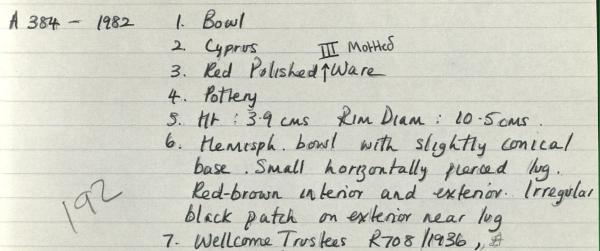 A 384 - 1982 1. Bowl
2. Cyprus III Mottled
3. Red Polished ↑ Ware
4. Pottery
5. Ht : 3.9 cms Rim Diam : 10.5 cms.
6. Hemisph. bowl with slightly conical
base. Small horizontally pierced lug.
Red-brown interior and exterior. Irregular
black patch on exterior near lug
192
7. Wellcome Trustees R708/1936,